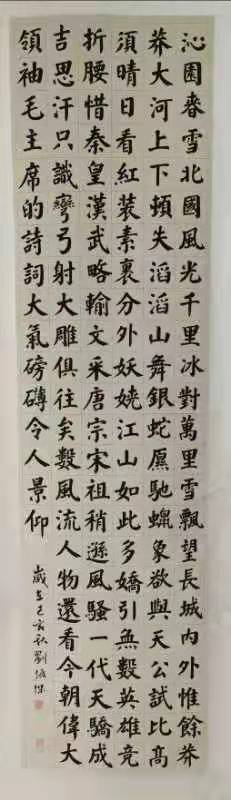 沁園春雪北國風光千里冰對萬里雪飄望長城內外惟餘莽
莽大河上下頓失滔滔山舞銀蛇原馳蠟象欲與天公試比高
須晴日看紅装素裹分外妖嬈江山如此多嬌引無數英雄竞
折腰惜秦皇漢武略輸文采唐宗宋祖稍遜風騷一代天驕成
吉思汗只識彎弓射大雕俱往矣數風流人物還看今朝偉大
領袖毛主席的詩詞大氣磅礴令人景仰
歲在己亥秋劉